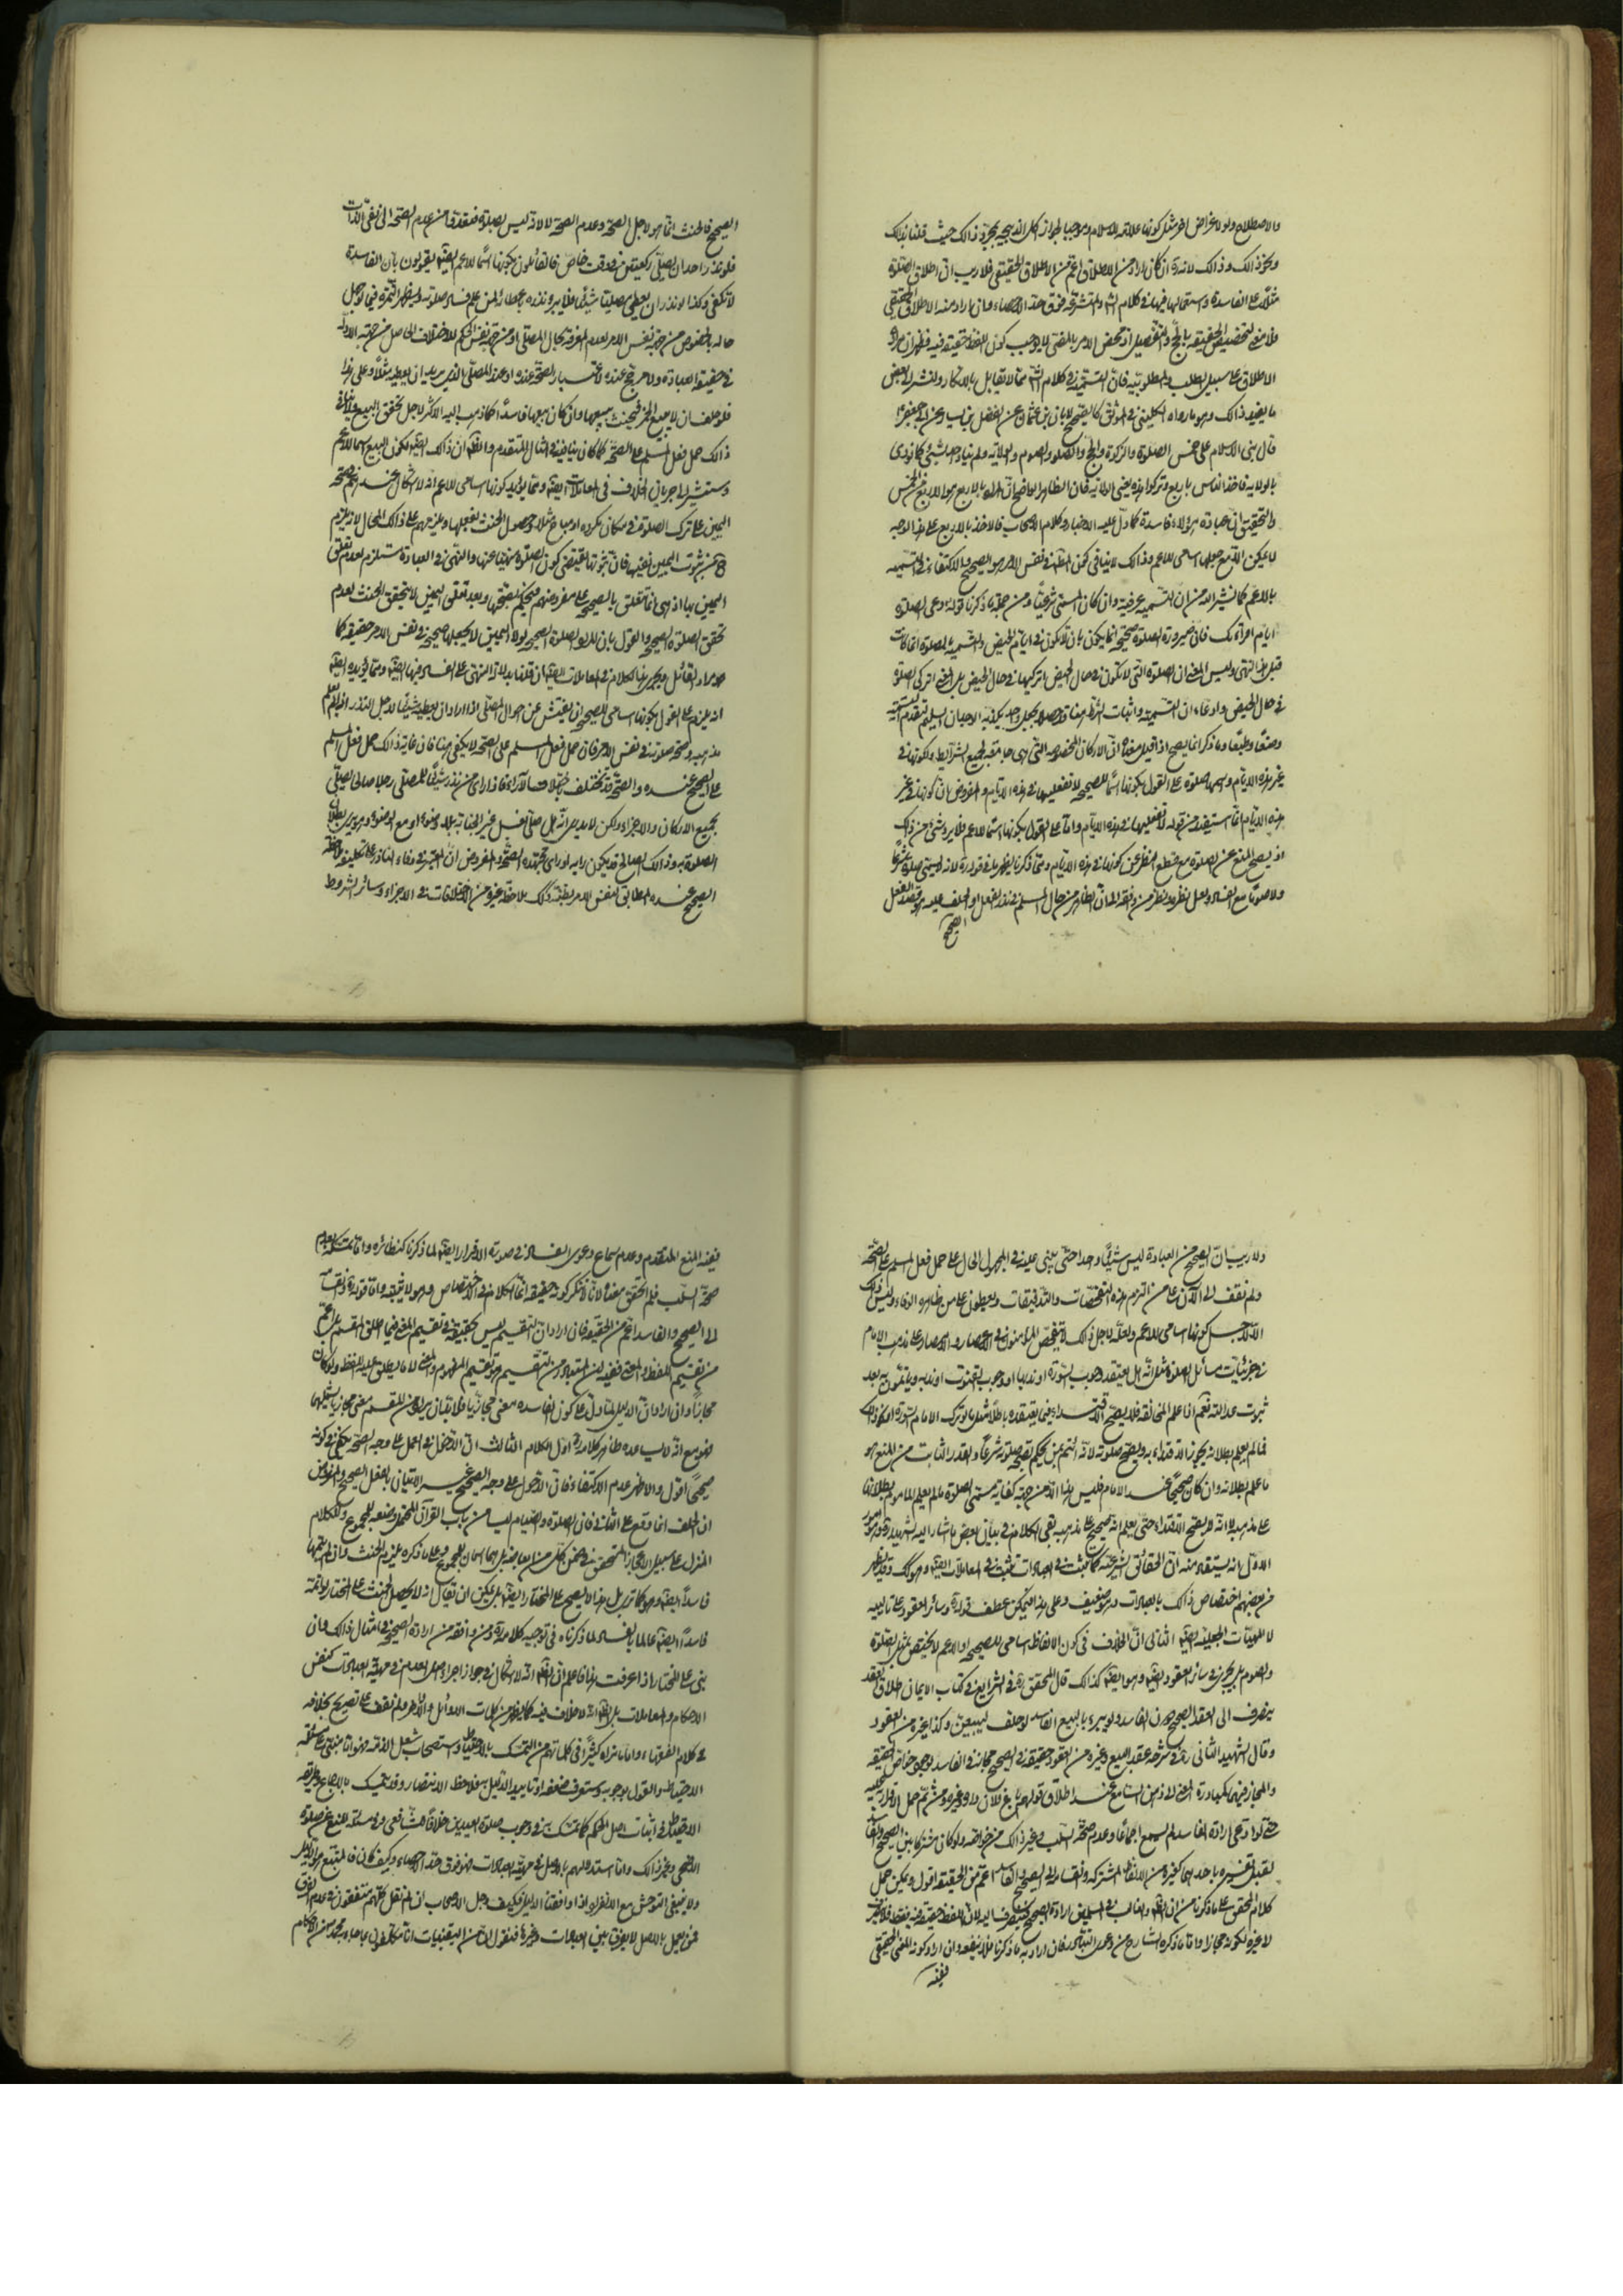 والاصطلاح ولو لاغراض اخر مثل كونها علامة للاسلام وموجبا لجواز اكل الذبيحة بمجرد ذالك حيث قلنا بذالك
ونحو ذالك وذالك لانه ان كان اراد من الاطلاق اعم من الاطلاق الحقيقي فلا ريب ان اطلاق الصلوة
مثلا على الفاسدة واستعمالها فيها في كلام المتشرعة فوق حد الاحصاء وان اراد منه الاطلاق الحقيقي
فلا معنى لتخصيص الحقيقة بالحج والتفصيل اذ محض الامر بالمضي لا يوجب كون اللفظ حقيقة فيه فظهر ان مراده
الاطلاق على سبيل الطلب والمطلوبية فان التسمية في كلام الشارع مما لا تقابل بالانكار ولنشر الى بعض
ما يفيد ذالك وهو ما رواه الكليني في الموثق كالصحيح لابان بن عثمان عن الفضل بن يسار عن ابي جعفر ع
قال بني الاسلام على خمس الصلوة والزكوة والحج والصوم والولاية ولم يناد احد بشئ كما نودي
بالولاية فاخذ الناس باربع وتركوا هذه يعني الولاية فان الظاهر الواضح ان المراد بالاربع هو الاربع من الخمس
والتحقيق ان عبادة هؤلاء فاسدة كما دل عليه الاخبار وكلام الاصحاب فالاخذ بالاربع على هذا الوجه
لا يمكن الا مع جعلها اسامي للاعم وذالك لا ينافي كون المطلوب في نفس الامر هو الصحيح والاكتفاء في التسمية
بالاعم كما نشير اليه من ان التسمية عرفية وان كان المسمى شرعيا ومن جملة ما ذكرنا قوله دعي الصلوة
ايام اقرائك فان صيرورة الصلوة صحيحة انما يكون بان لا تكون في ايام الحيض والتسمية بالصلوة انما كانت
قبل هذا النهي وليس المعنى ان الصلوة التي لا تكون في حال الحيض اتركيها في حال الحيض بل المعنى اتركي الصلوة
في حال الحيض وادعاء ان التسمية واثبات الشرط هنا قد حصلا بجعل واحد يكذبه الوجدان السليم لتقدم التسمية
وضعا وطبعا وما ذكر انما يصح اذا قيل معناه ان الاركان المخصوصة التي هي جامعة لجميع الشرايط ولكونها في
غير هذه الايام واسمها صلوة على القول بكونها اسما للصحيحة لا تفعليها في هذه الايام والمفروض ان كونها في غير
هذه الايام انما استفيد من قوله لا تفعليها في هذه الايام واما على القول بكونها اسما للاعم فلا يرد شئ من ذالك
اذ يصح المنع عن الصلوة مع قطع النظر عن كونها في هذه الايام ومما ذكرنا يظهر ما في قوله ره لانه لا يسمى صلوة شرعا
ولا صوما مع الفساد ولعل نظره ونظر من وافقه الى ان الظاهر من حال المسلم في نذر الفعل او الحلف عليه هو قصد الفعل
الصحيح
الصحيح فالحنث انما هو لاجل الصحة وعدم الصحة لا لانه ليس بصلوة فتعدى من عدم الصحة الى نفي الذات
فلو نذر احد ان يصلي ركعتين في وقت خاص فالقائلون بكونها اسما للاعم ايضا يقولون بان الفاسدة
لا تكفي وكذا لو نذر ان يعطي مصليا شيئا فلا يبر نذره باعطائه لمن علم فساد صلوته ويظهر الثمرة فيما لو جهل
حاله بالخصوص من جهة نفس الامر لعدم المعرفة بحال المصلي او من جهة نفس الحكم للاختلاف الحاصل من جهة الادلة
في حقيقة العبادة ولا مرجح عنده لاعتبار الصحة عنده او عند المصلي الذي يريد ان يعطيه مثلا وعلى هذا
فلو حلف ان لا يبيع الخمر فيحنث ببيعها وان كان بيعها فاسدا كما ذهب اليه الاكثر لاجل تحقق البيع ولا ينافي
ذالك حمل فعل المسلم على الصحة كما كان ينافيه في المثال المتقدم والظاهر ان ذالك ايضا لكون البيع اسما للاعم
وسنشير الى جريان الخلاف في المعاملات ايضا ومما يؤيد كونها اسامي للاعم انه لا اشكال عندهم في صحة
اليمين على ترك الصلوة في مكان مكروه او مباح مثلا وحصول الحنث بفعلها ويلزمهم على ذالك المحال لانه يلزم
من ثبوت اليمين نفيها فان ثبوتها يقتضي كون الصلوة منهيا عنها والنهي في العبادة مستلزم لعدم تعلق
اليمين بها اذ هي انما تتعلق بالصحيحة على مفروضهم فيحكم بصحتها وبعد تعلق اليمين لا يتحقق الحنث لعدم
تحقق الصلوة الصحيحة والقول بان المراد الصلوة الصحيحة لولا اليمين لا يجعلها صحيحة في نفس الامر حقيقة كما
هو مراد القائل ويجري هذا الكلام في المعاملات ايضا ان قلنا بدلالة النهي على الفساد فيها ايضا ومما يؤيده ايضا
انه يلزم على القول بكونها اسامي للصحيح ان يفتش عن احوال المصلي اذا اراد ان يعطيه شيئا لاجل النذر اذ لم يعلم
مذهبه وصحة صلوته في نفس الامر فان حمل فعل المسلم على الصحة لا يكفي هنا فان غاية ذالك حمل فعل المسلم
على الصحيح عنده والصحة قد تختلف باختلاف الآراء فاذا راى من نذر شيئا للمصلي رجلا صالحا يصلي
بجميع الاركان والاجزاء ولكن لا يدري انه هل صلى بغسل غير الجنابة بلا وضوء او مع الوضوء وهو يرى بطلان
الصلوة به وذالك الصالح قد يكون رايه او راى مجتهده الصحة والمفروض ان المعتبر في وفاء الناذر على تكليفه ملاحظة
الصحيح عنده المطابق لنفس الامر بظنه وكذلك ملاحظة غيره من الاختلافات في الاجزاء وسائر الشروط
ولا ريب ان الصحيح من العبادة ليس شيئا واحدا حتى يبنى عليه في المجهول الحال على حمل فعل المسلم على الصحة
ولم نقف الى الآن على من التزم هذه التفحصات والتدقيقات ويعطون على من ظاهره الوفاء وليس ذالك
الا لاجل كونها اسامي للاعم ولعله لاجل ذالك لا يتفحص المؤمنون في الاعصار والامصار عن مذهب الامام
في جزئيات مسائل الصلوة مثل انه هل يعتقد وجوب السورة او ندبها او وجوب القنوت او ندبه ويأتمون به بعد
ثبوت عدالته نعم اذا علم المخالفة فلا يصح الاقتداء فيما يعتقده باطلا مثل ما لو ترك الامام السورة او نحو ذالك
فما لم يعلم بطلانه يجوز الاقتداء به ويصح صلوته لانه ائتم بمن يحكم بصحة صلوته شرعا والقدر الثابت من المنع هو
ما علم بطلانه وان كان صحيحا عند الامام فليس هذا الا من جهة كفاية مسمى الصلوة ما لم يعلم الماموم بطلانها
على مذهبه لا انه لا يصح الاقتداء حتى يعلم انه صحيح على مذهبه بقي الكلام في بيان بعض ما اشار اليه الشهيد ره وهو امور
الاول انه يستفاد منه ان الحقائق الشرعية كما تثبت في العبادات تثبت في المعاملات ايضا وهو كك وقد يظهر
من بعضهم اختصاص ذالك بالعبادات وهو ضعيف وعلى هذا فيمكن عطف قوله وسائر العقود على تاليه
لا للمهيات الجعلية ايضا الثاني ان الخلاف في كون الالفاظ اسامي للصحيحة او الاعم لا يختص بمثل الصلوة
والصوم بل يجري في سائر العقود ايضا وهو ايضا كذالك قال المحقق ره في الشرايع في كتاب الايمان اطلاق العقد
ينصرف الى العقد الصحيح دون الفاسد ولا يبرء بالبيع الفاسد لو حلف ليبيعن وكذا غيره من العقود
وقال الشهيد الثاني ره في شرحه عقد البيع وغيره من العقود حقيقة في الصحيح مجاز في الفاسد لوجود خواص الحقيقة
والمجاز فيهما كمبادرة المعنى الى ذهن السامع عند اطلاق قولهم باع فلان داره وغيره ومن ثم حمل الاقرار به عليه
حتى لو ادعى ارادة الفاسد لم يسمع اجماعا وعدم صحة السلب وغير ذالك من خواصه ولو كان مشتركا بين الصحيح والفاسد
لقبل تفسيره باحدهما كغيره من الالفاظ المشتركة وانقسامه الى الصحيح والفاسد اعم من الحقيقة اقول ويمكن حمل
كلام المحقق على ما ذكرنا من ان الظاهر والغالب في المسلمين ارادة الصحيح فينصرف اليه لا ان اللفظ حقيقة فيه فقط فلا ينصرف
لا غيره لكونه مجازا واما ما ذكره الشارح من دعوى التبادر فان اراد به ما ذكرنا فلا ينفعه وان اراد كونه المعنى الحقيقي
ففيه
ففيه المنع المتقدم وعدم سماع دعوى الفساد في صورة الاقرار ايضا لما ذكرنا كنظائره واما تمسكه بعدم
صحة السلب فلم نتحقق معناه لانا لا ننكر كونه حقيقة انما الكلام في الاختصاص وهو لا يثبته واما قوله وانقسامه
الى الصحيح والفاسد اعم من الحقيقة فان اراد ان التقسيم ليس بحقيقة في تقسيم المعنى فيما اطلق المقسم بل اعم
من تقسيم اللفظ والمعنى ففيه ان المتبادر من التقسيم هو تقسيم المفهوم والمعنى لا ما يطلق عليه اللفظ ولو كان
مجازا وان اراد ان الدليل لما دل على كون الفاسدة معنى مجازيا فلا بد ان يراد من المقسم معنى مجازيا يشملهما
فهو مع انه لا يساعده ظاهر كلامه اول الكلام الثالث ان الدخول في العمل على وجه الصحة يكفي في كونه
صحيحا اقول والاظهر عدم الاكتفاء فان الدخول على وجه الصحيح غير الاتيان بالفعل الصحيح والمفروض
ان الحلف انما وقع على الثاني فان الصلوة والصيام ليسا من باب القرآن المحتمل وضعه للمجموع وللكلام
المنزل على سبيل الاعجاز المتحقق في ضمن كل من ابعاضه بل هما اسمان للمجموع وعلى ما ذكره يلزم الحنث وان لم يتمها
فاسدا ايضا وهو كما ترى بل هذا لا يصح على المختار ايضا بل يمكن ان يقال انه لا يحصل الحنث على المختار لو اتمه
فاسدا ايضا عالما بالفساد لما ذكرناه في توجيه كلامه ره ومن وافقه من ارادة الصحيحة في امثال ذالك وان
بنى على المختار اذا عرفت هذا فاعلم ان الظاهر انه لا اشكال في جواز اجراء اصل العدم في مهية العبادات كنفس
الاحكام والمعاملات بل الظاهر انه لا خلاف فيه كما يظهر من كلمات الاوائل والاواخر ولم نقف على تصريح بخلافه
في كلام الفقهاء واما ما نراه كثيرا في كلماتهم من التمسك بالاحتياط واستصحاب شغل الذمة فهو اما مبني على مسئلة
الاحتياط والقول بوجوبه وستعرف ضعفه او تاييد الدليل به فلاحظ الانتصار وقد تمسك بالاجماع وطريقة
الاحتياط في اثبات اصل الحكم كما تمسك به في وجوب صلوة العيدين خلافا للشافعي وفي مسئلة المنع عن صلوة
الاضحى وغير ذالك واما استدلالهم بالاصل في مهية العبادات فهو فوق حد الاحصاء وكيف كان فالمتبع هو الدليل
ولا ينبغي التوحش مع الانفراد اذا وافقنا الدليل فكيف وجل الاصحاب ان لم نقل كلهم متفقون في عدم الفرق
فمن يعمل بالاصل لا يفرق بين العبادات وغيرها فنقول ان من اليقينيات انا مكلفون بما جاء به محمد ص من الاحكام